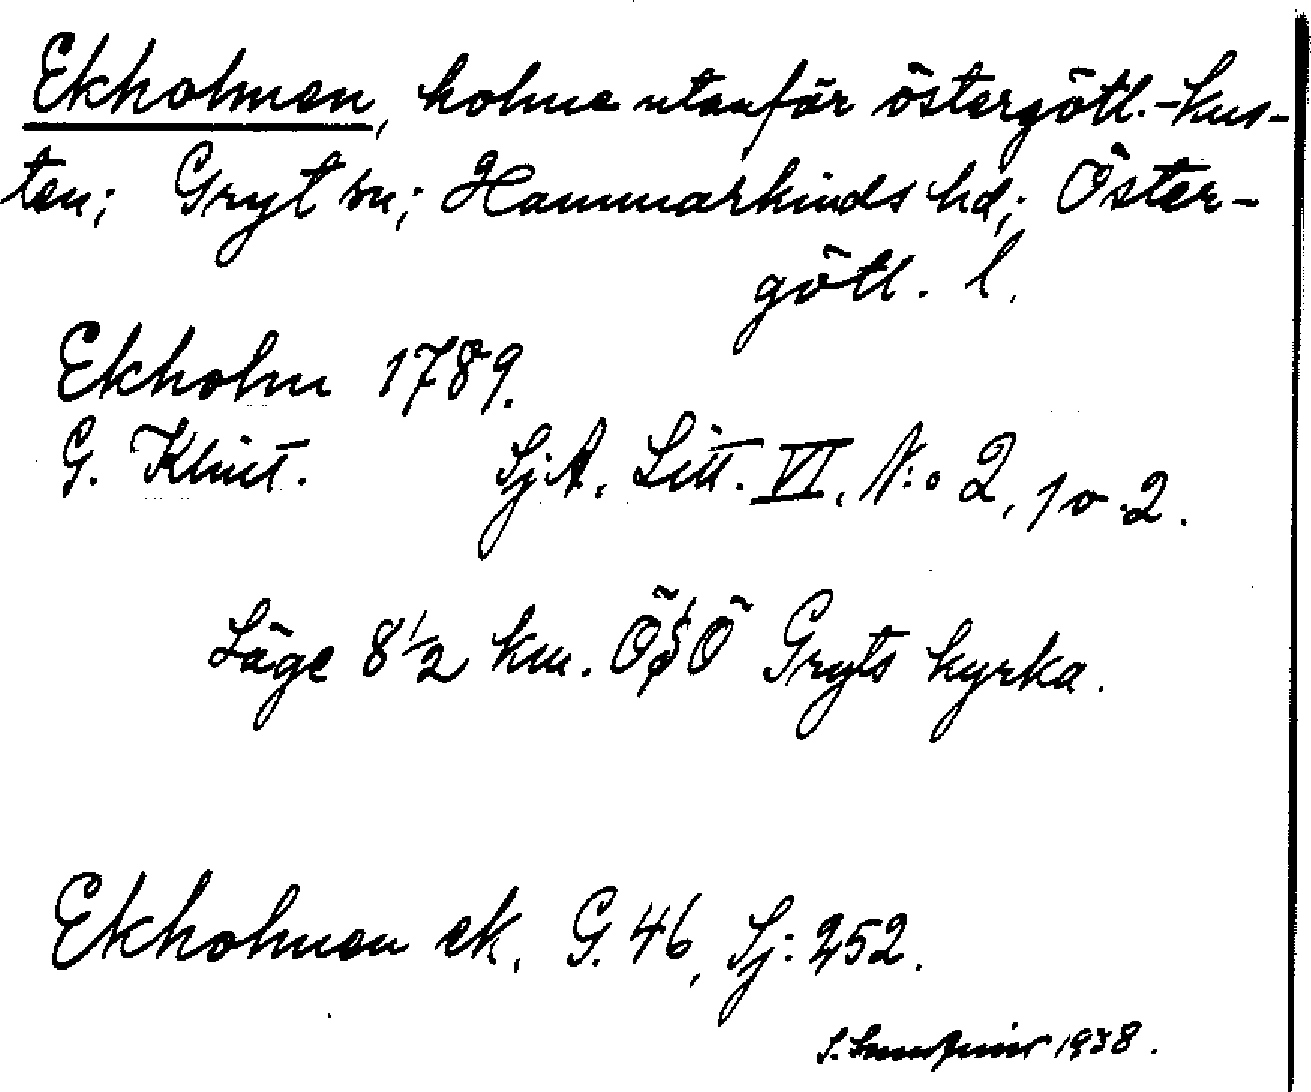 Ekholmen, holme utanför östergötl.-kus-
ten; Gryt sn; Hammarkinds hd; Öster-
götl. l.
Ekholm 1789.
G. Klint. SjA. Litt. VI. N:o 2, 1 o 2.
Läge 8 1/2 km. ÖSÖ Gryts kyrka.
Ekholmen ek. G. 46, Sj: 252.
S. 1938.